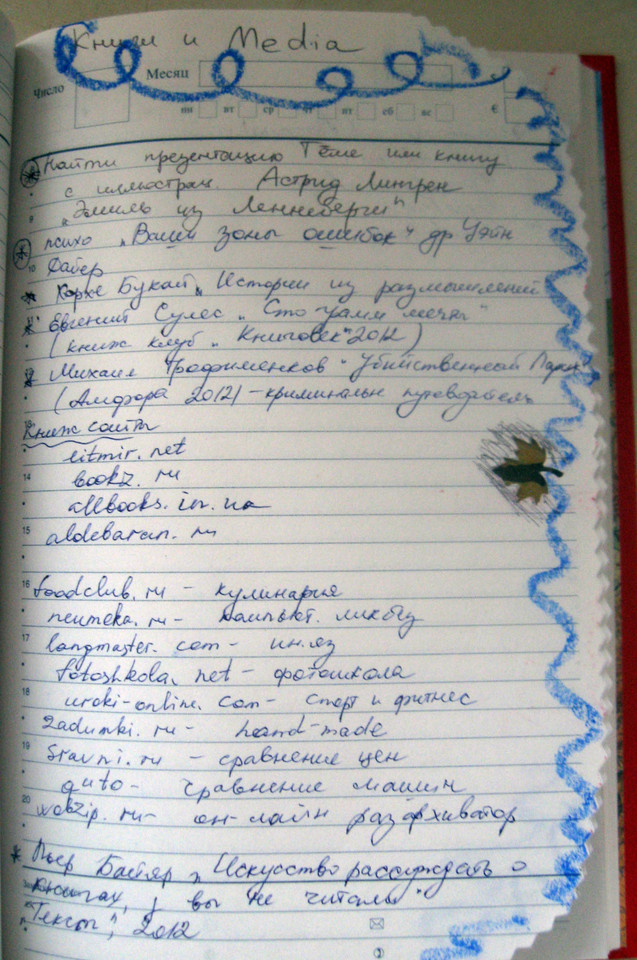 Книги и Media
Число
Месяц
пн вт ср чт пт сб вс
Найти презентацию Теме или книгу
с иллюстрац. Астрид Лингрен
9 „Эмиль из Леннеберги"
психо „Ваши зоны ошибок" др Уэйн
10 Файер
Хорхе Букай „Истории из размышлений
11 Евгений Сулес „Сто грамм мечты"
(книж клуб „Книговек" 2012)
12 Михаил Трофименков "Убийственный Париж
(Амфора 2012) - криминальн путеводитель
13 Книж сайты
litmir.net
14 bookz.ru
allbooks.in.ua
15 aldebaran.ru
16 foodclub.ru - кулинария
neumeka.ru - компьют. ликбез
17 langmaster.com - ин.яз
fotoshkola.net - фотошкола
18 uroki-online.com - спорт и фитнес
zadumki.ru - hand-made
19 Sravni.ru - сравнение цен
auto - сравнение машин
20 wobzip.ru - он-лайн разархиватор
Пьер Байяр „Искусство рассуждать о
книгах, вы не читали"
„Тексты", 2012